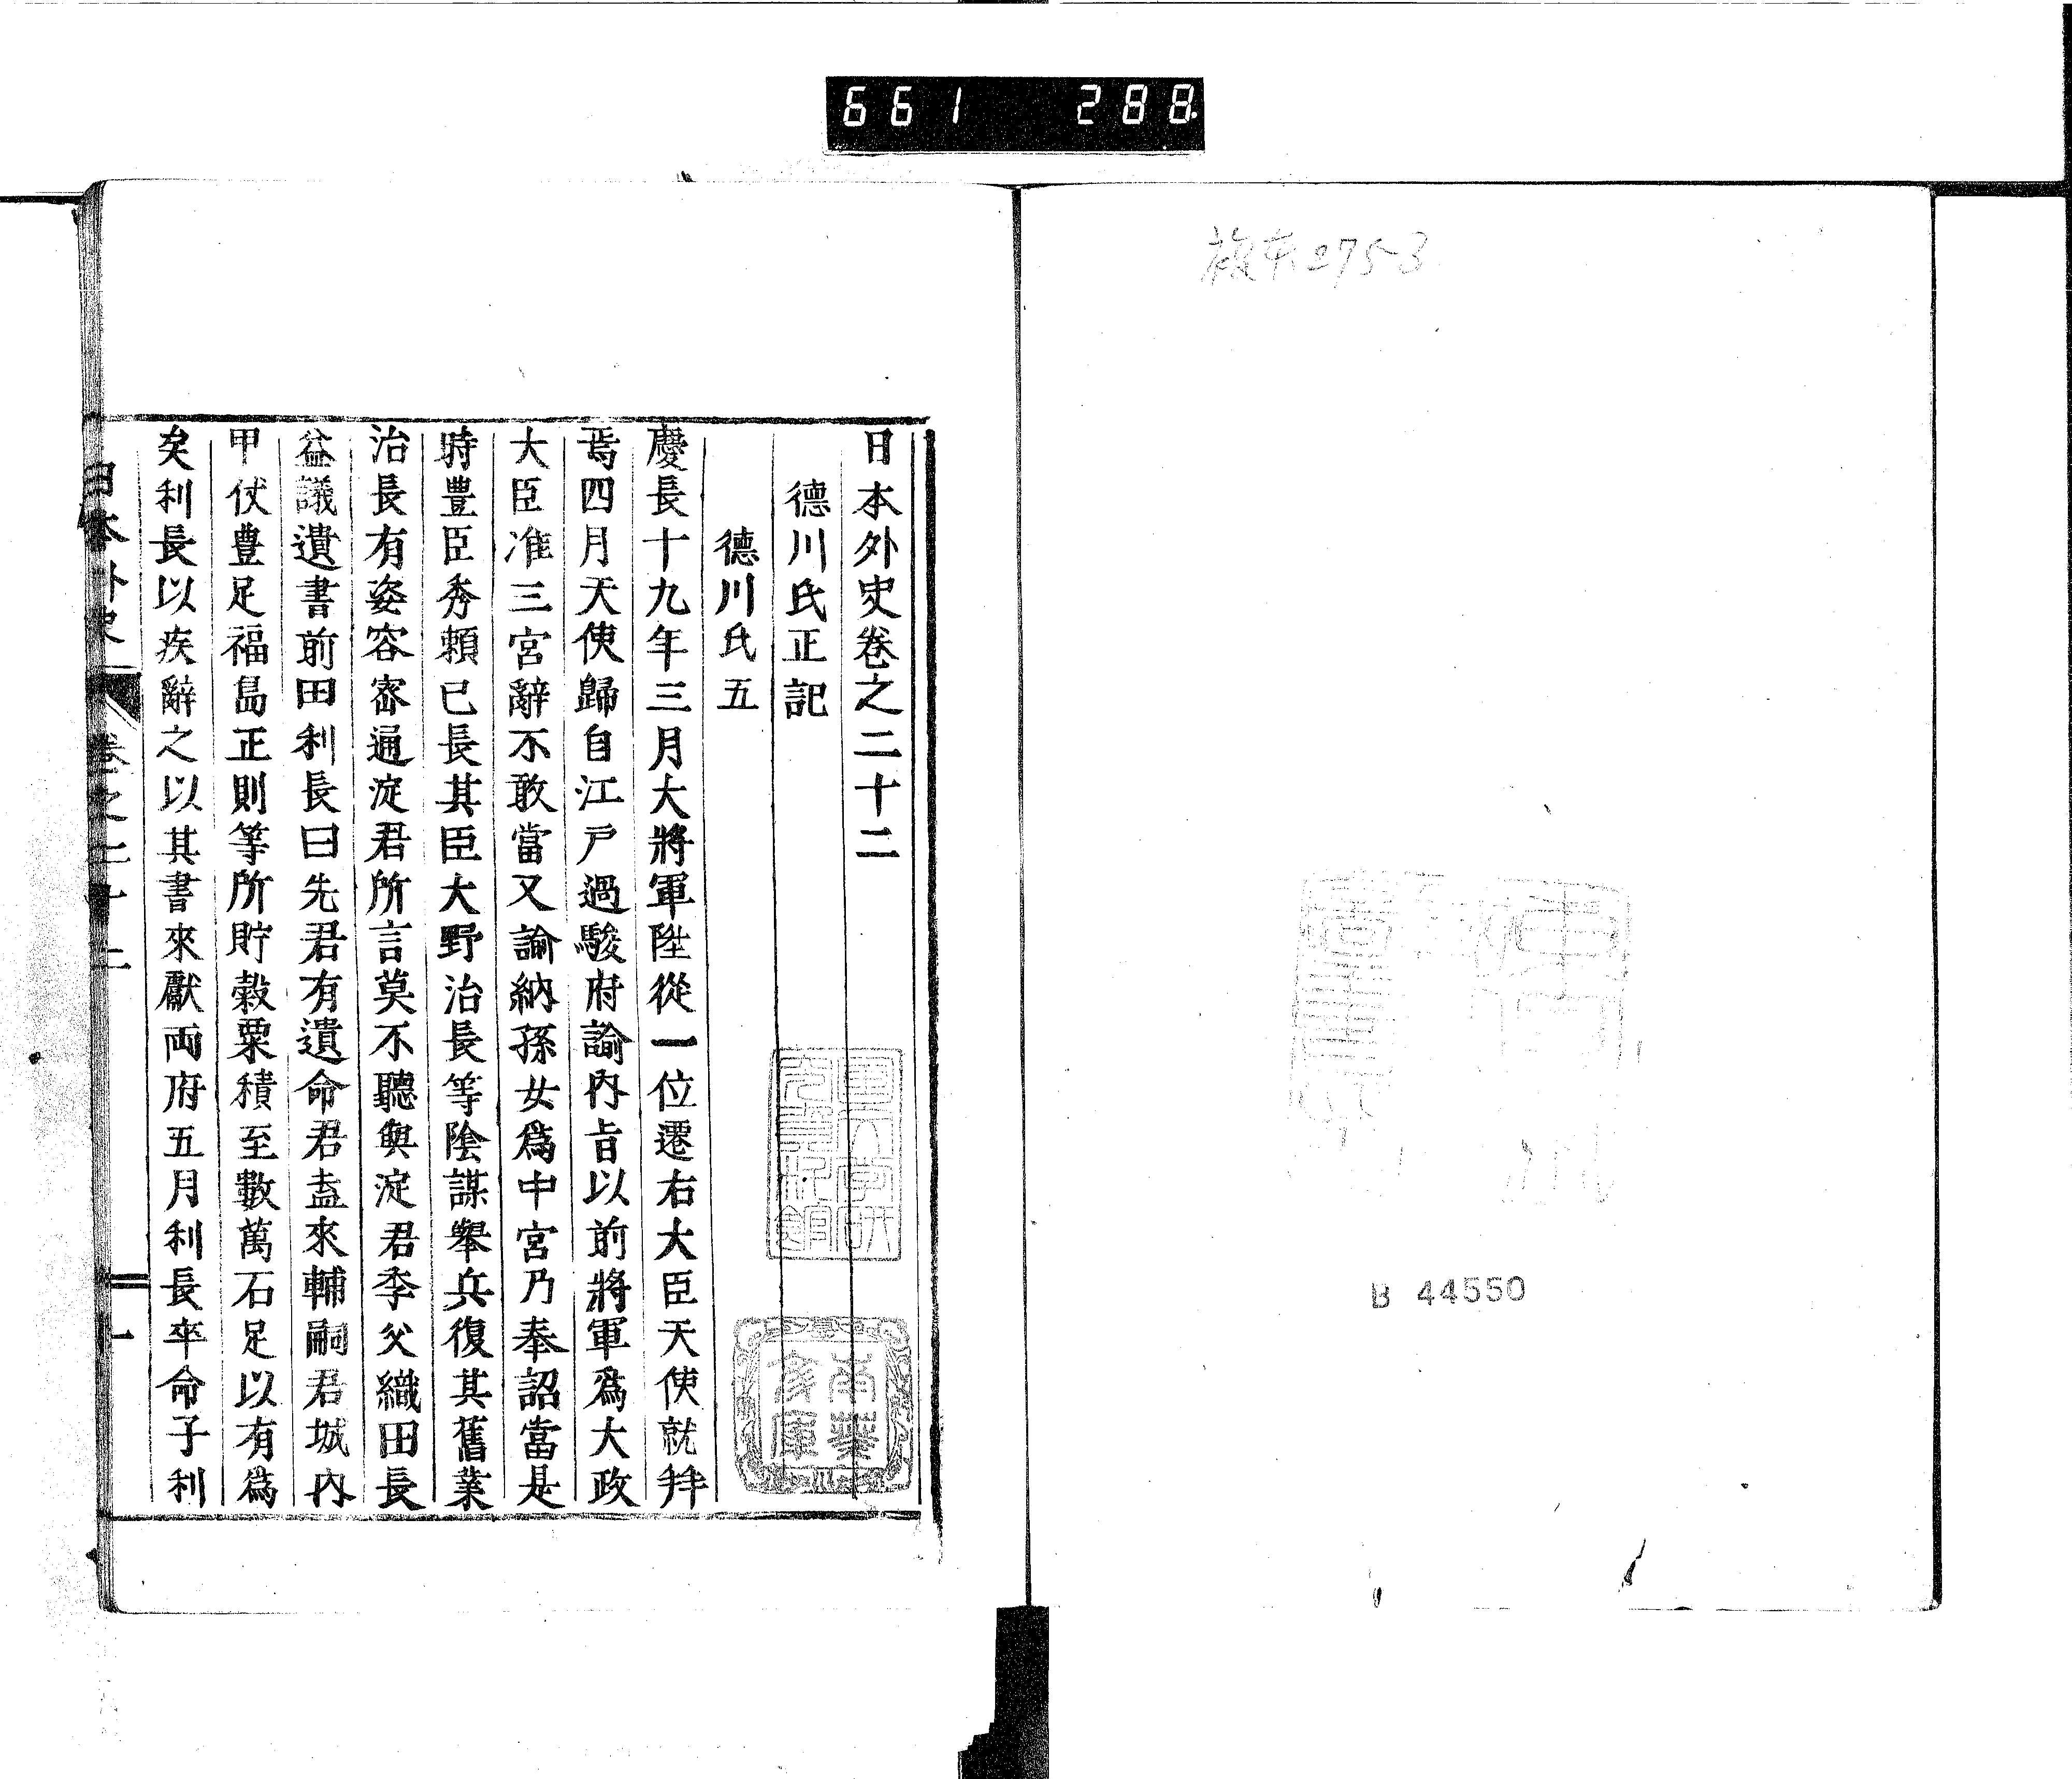 661 288
2753
B 44550
日本外史卷之二十二
德川氏正記
德川氏五
慶長十九年三月大將軍陞從一位遷右大臣天使就拜
焉四月天使歸自江戸過駿府諭內旨以前將軍爲大政
大臣准三宮辭不敢當又諭納孫女爲中宮乃奉詔當是
時豊臣秀賴已長其臣大野治長等陰謀擧兵復其舊業
治長有姿容宻通淀君所言莫不聽與淀君季父織田長
益議遺書前田利長曰先君有遺命君盍來輔嗣君城內
甲仗豊足福島正則等所貯穀粟積至數萬石足以有爲
矣利長以疾辭之以其書來獻両府五月利長卒命子利
日本外史 卷之二十二 一